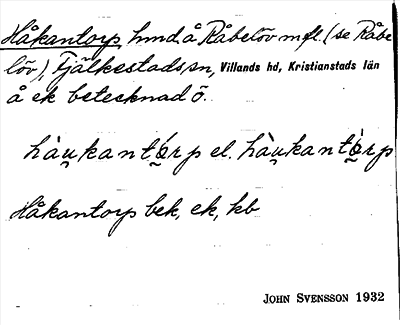 Håkantorp hmd å Råbelöv m fl. (se Råbe
löv), Fjälkestads sn, Villands hd, Kristianstads län
å ek betecknad ö.
hàu̯kantórp el. hàu̯kantò̤rp
Håkantorp bek, ek, kb
JOHN SVENSSON 1932